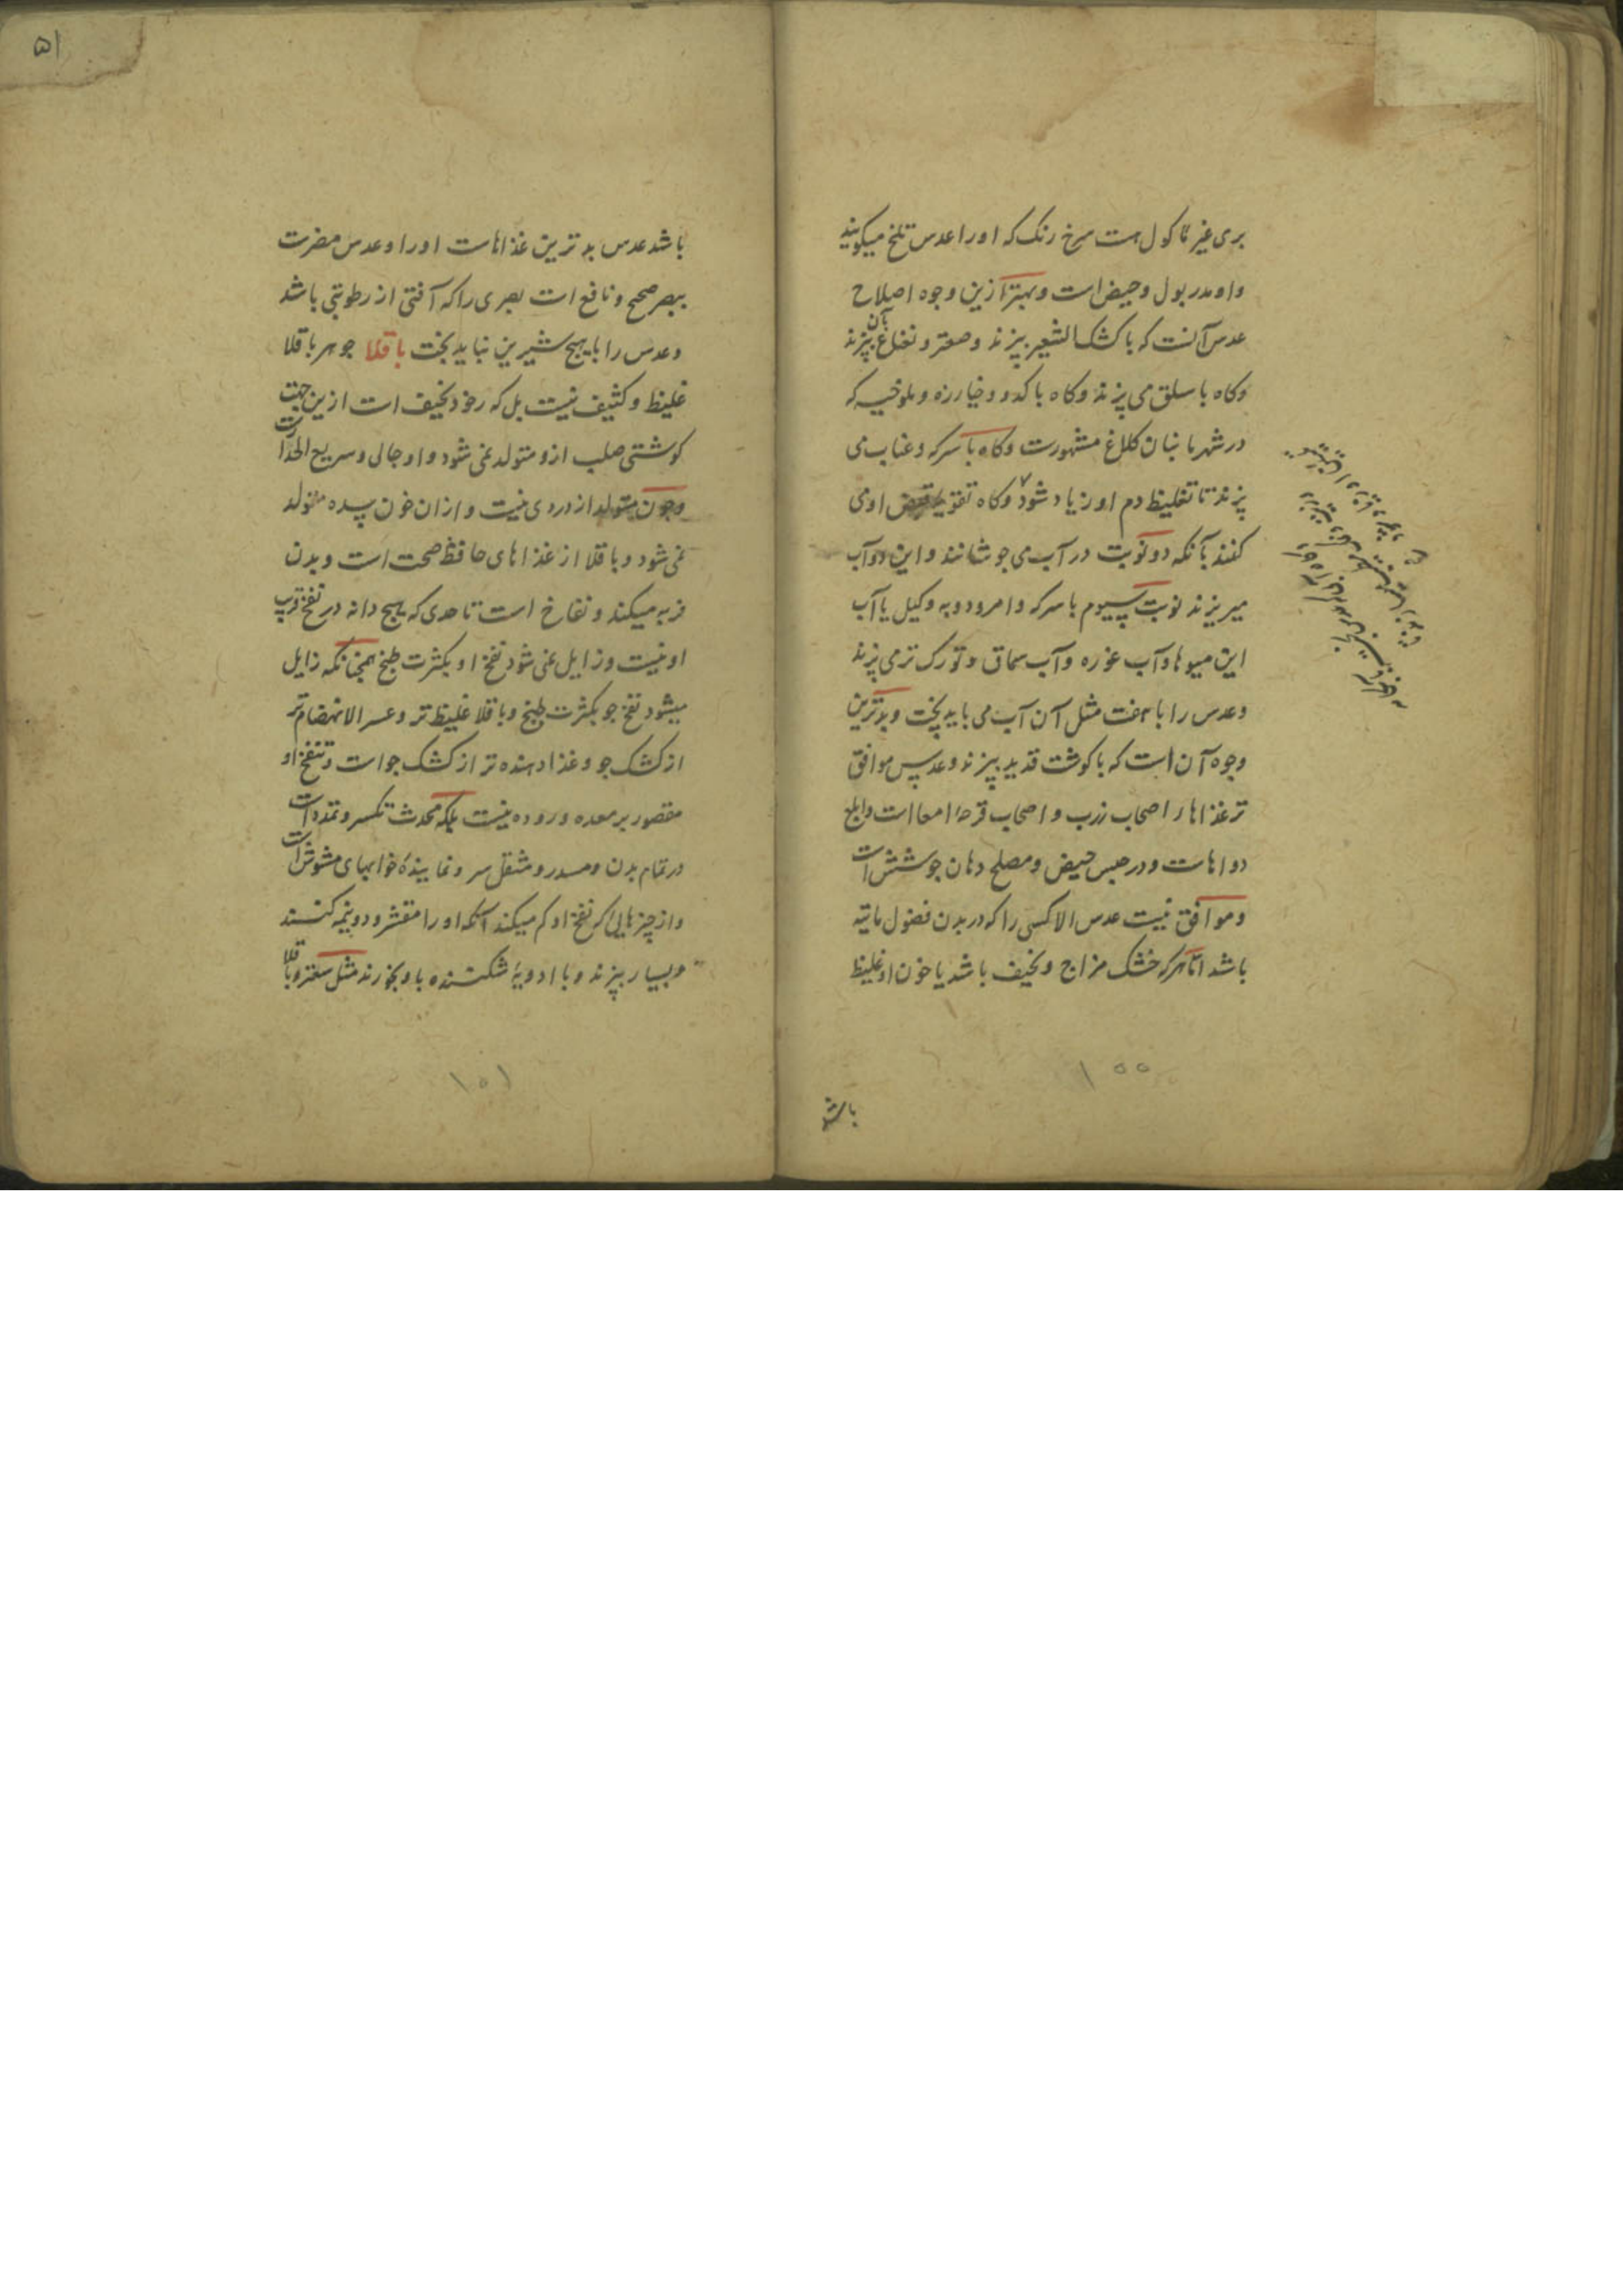 بری غیر ماکول هست سرخ رنک که اورا عدس تلخ میکویند
و او مدر بول و حیض است و بهتر ازین وجوه اصلاح
عدس آنست که با کشک الشعیر بپزند و صعتر و نعناع بآن بپزند
و کاه با سلق می پزند و کاه با کدو و خیارزه و ملوخیه که
در شهر ما بنان کلاغ مشهورست و کاه با سرکه و عناب می
پزند تا تغلیظ دم او زیاد شود و کاه تقویت قبض او می
کنند بآنکه دو نوبت در آب می جوشانند و این دو آب
میریزند نوبت سیوم با سرکه و امرود و به و کیل یا آب
این میوها و آب غوره و آب سماق و تورک تر می پزند
و عدس را با مثل آن آب می باید پخت و بدترین
وجوه آن است که با کوشت قدید بپزند و عدس موافق
تر غذاها را اصحاب زرب و اصحاب قرحهٔ امعا است و ابلغ
دواهاست و در حبس حیض و مصلح دهان جوشش است
و موافق نیست عدس الا کسی را که در بدن فضول مائیه
باشد امّا هر که خشک مزاج و نحیف باشد یا خون او غلیظ
باشد
۱۰۰
۵۱
باشد عدس بدترین غذاهاست اورا و عدس مضرت
ببصر صحیح و نافع است بصری را که آفتی از رطوبتی باشد
و عدس را با هیچ شیرین نباید پخت باقلا جوهر باقلا
غلیظ و کثیف نیست بل که رخو و نحیف است ازین جهت
کوشتی صلب ازو متولد نمی شود و او جالی و سریع است
و خون متولد از دردی نیست و از آن خون سده متولد
نمی شود و باقلا از غذاهای حافظ صحت است و بدن
فربه میکند و نفاخ است تا حدی که هیچ دانه در نفخ قریب
او نیست و زایل نمی شود نفخ او بکثرت طبخ همچنانکه زایل
میشود نفخ جو بکثرت طبخ و باقلا غلیظ تر و عسر الانهضام تر
از کشک جو و غذا دهنده تر از کشک جو است و نفخ او
مقصور بر معده و روده نیست بلکه محدث تکسر و تمدد است
در تمام بدن و مسدر و مثقل سر و نمایندهٔ خوابهای مشوش است
و از چیزهایی که نفخ او کم میکند آنکه اورا مقشر و دو نیمه کنند
و بسیار بپزند و با ادویهٔ شکننده باد بخورند مثل سعتر و باقلا
۱۰۱